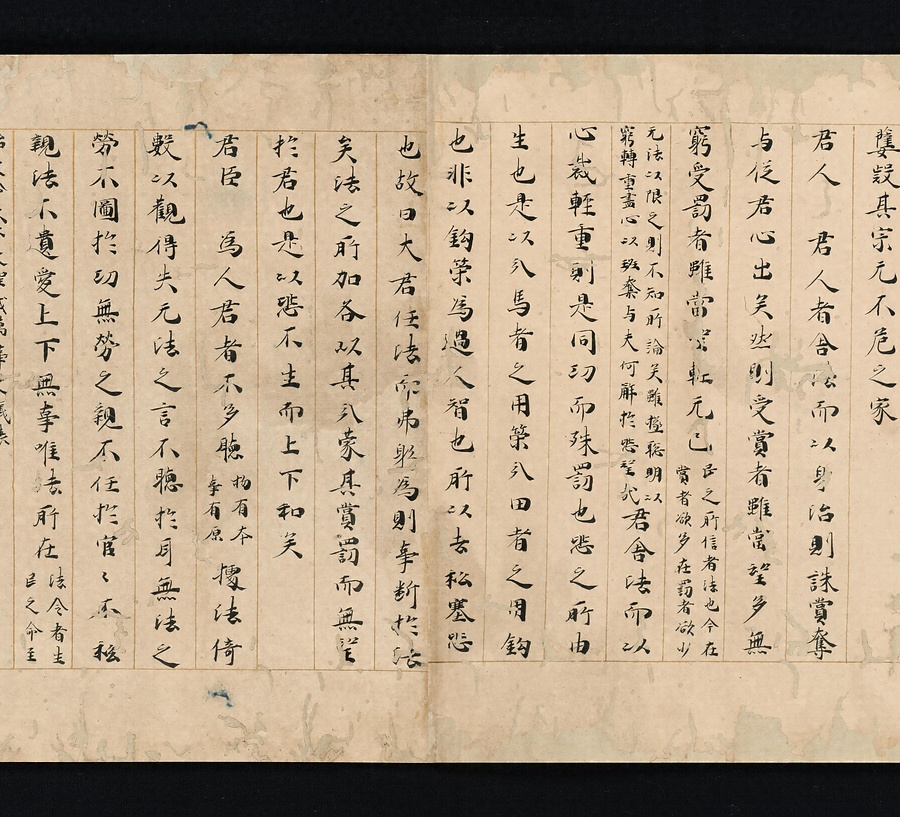 疑其宗无不危之家
君人　君人者舍法而以身治則誅賞奪
与從君心出矣然則受賞者雖當望多無
窮受罰者雖當望軽无已
民之所信者法也今在
賞者欲多在罰者欲少
无法以限之則不知所論矣雖極聡明以
窮轉重盡心以班奪与夫何解於怨望哉
君舍法而以
心裁輕重則是同功而殊罰也怨之所由
生也是以分馬者之用策分田者之用鈎
也非以鈎策為過人智也所以去私塞怨
也故曰大君任法而弗躬為則事断於法
矣法之所加各以其分蒙其賞罰而無望
於君也是以怨不生而上下和矣
君臣　為人君者不多聴
物有本
事有原
據法倚
數以觀得失无法之言不聴於耳無法之
勞不圖於功無勞之親不任於官々不私
親法不遺愛上下無事唯法所在
法令者生
民之命至